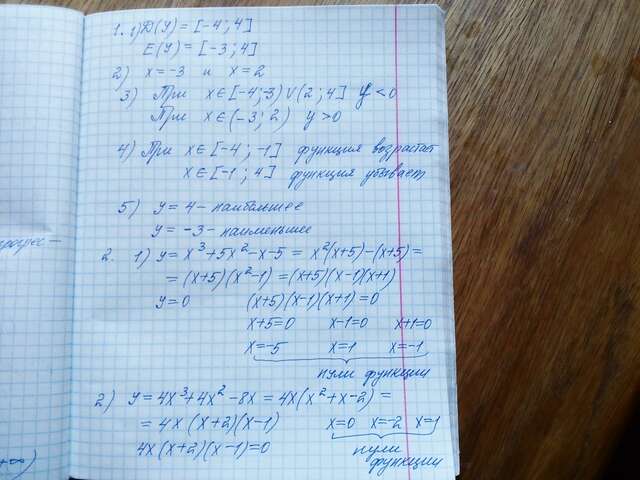 1. 1) D(y) = [-4; 4]
E(y) = [-3; 4]
2) x = -3 и x = 2
3) При x ∈ [-4; -3) ∪ (2; 4] y < 0
При x ∈ (-3; 2) y > 0
4) При x ∈ [-4; -1] функция возрастает
x ∈ [-1; 4] функция убывает
5) y = 4 - наибольшее
y = -3 - наименьшее
2. 1) y = x³+5x²-x-5 = x²(x+5)-(x+5) =
= (x+5)(x²-1) = (x+5)(x-1)(x+1)
y=0 (x+5)(x-1)(x+1)=0
x+5=0 x-1=0 x+1=0
x=-5 x=1 x=-1
нули функции
2) y = 4x³+4x²-8x = 4x(x²+x-2) =
= 4x(x+2)(x-1) x=0 x=-2 x=1
4x(x+2)(x-1)=0 нули
функции
+∞)